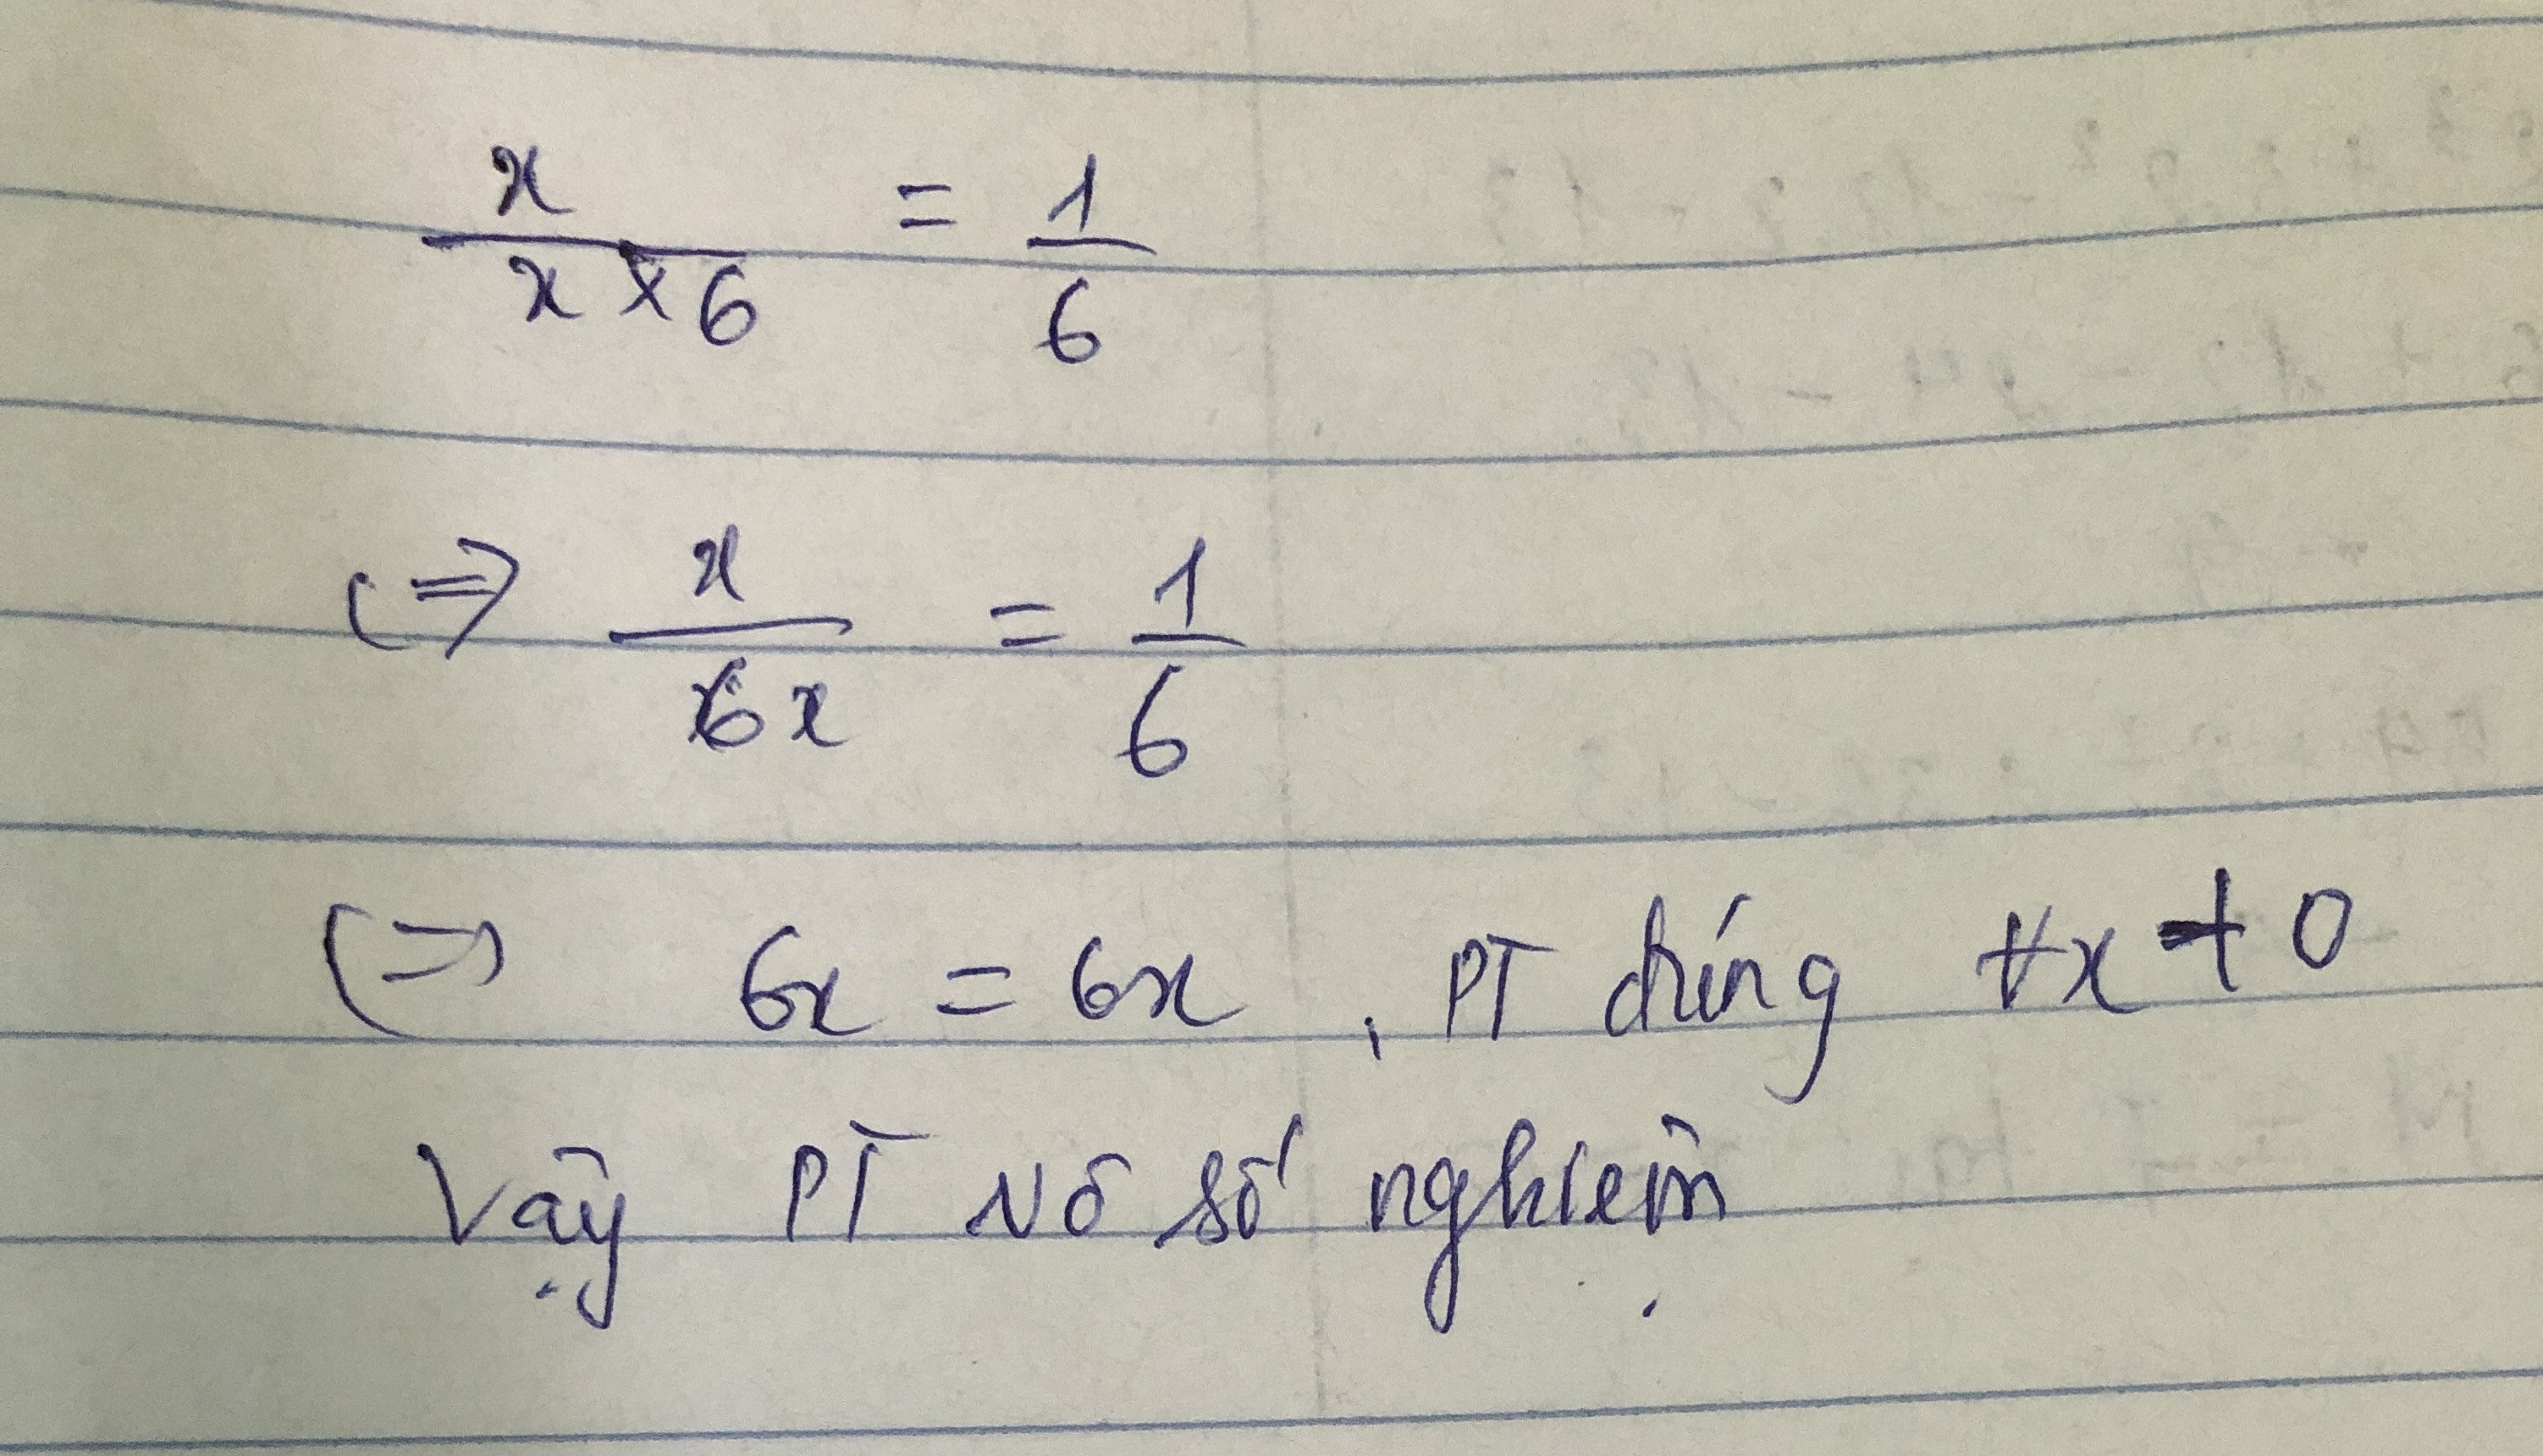 x/(x × 6) = 1/6
<=> x/(6x) = 1/6
<=> 6x = 6x, PT đúng ∀x ≠ 0
Vậy PT vô số nghiệm